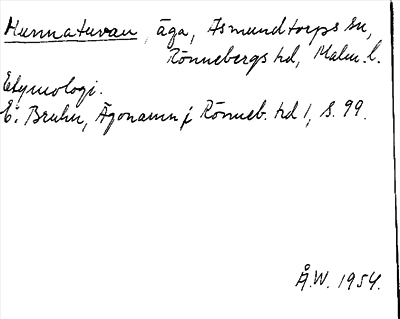 Hunnatuvan, äga, Asmundtorps sn,
Rönnebergs hd, Malm. l.
Etymologi.
E. Bruhn, Ägonamn i Rönneb. hd 1, s. 99.
Å.W. 1954.